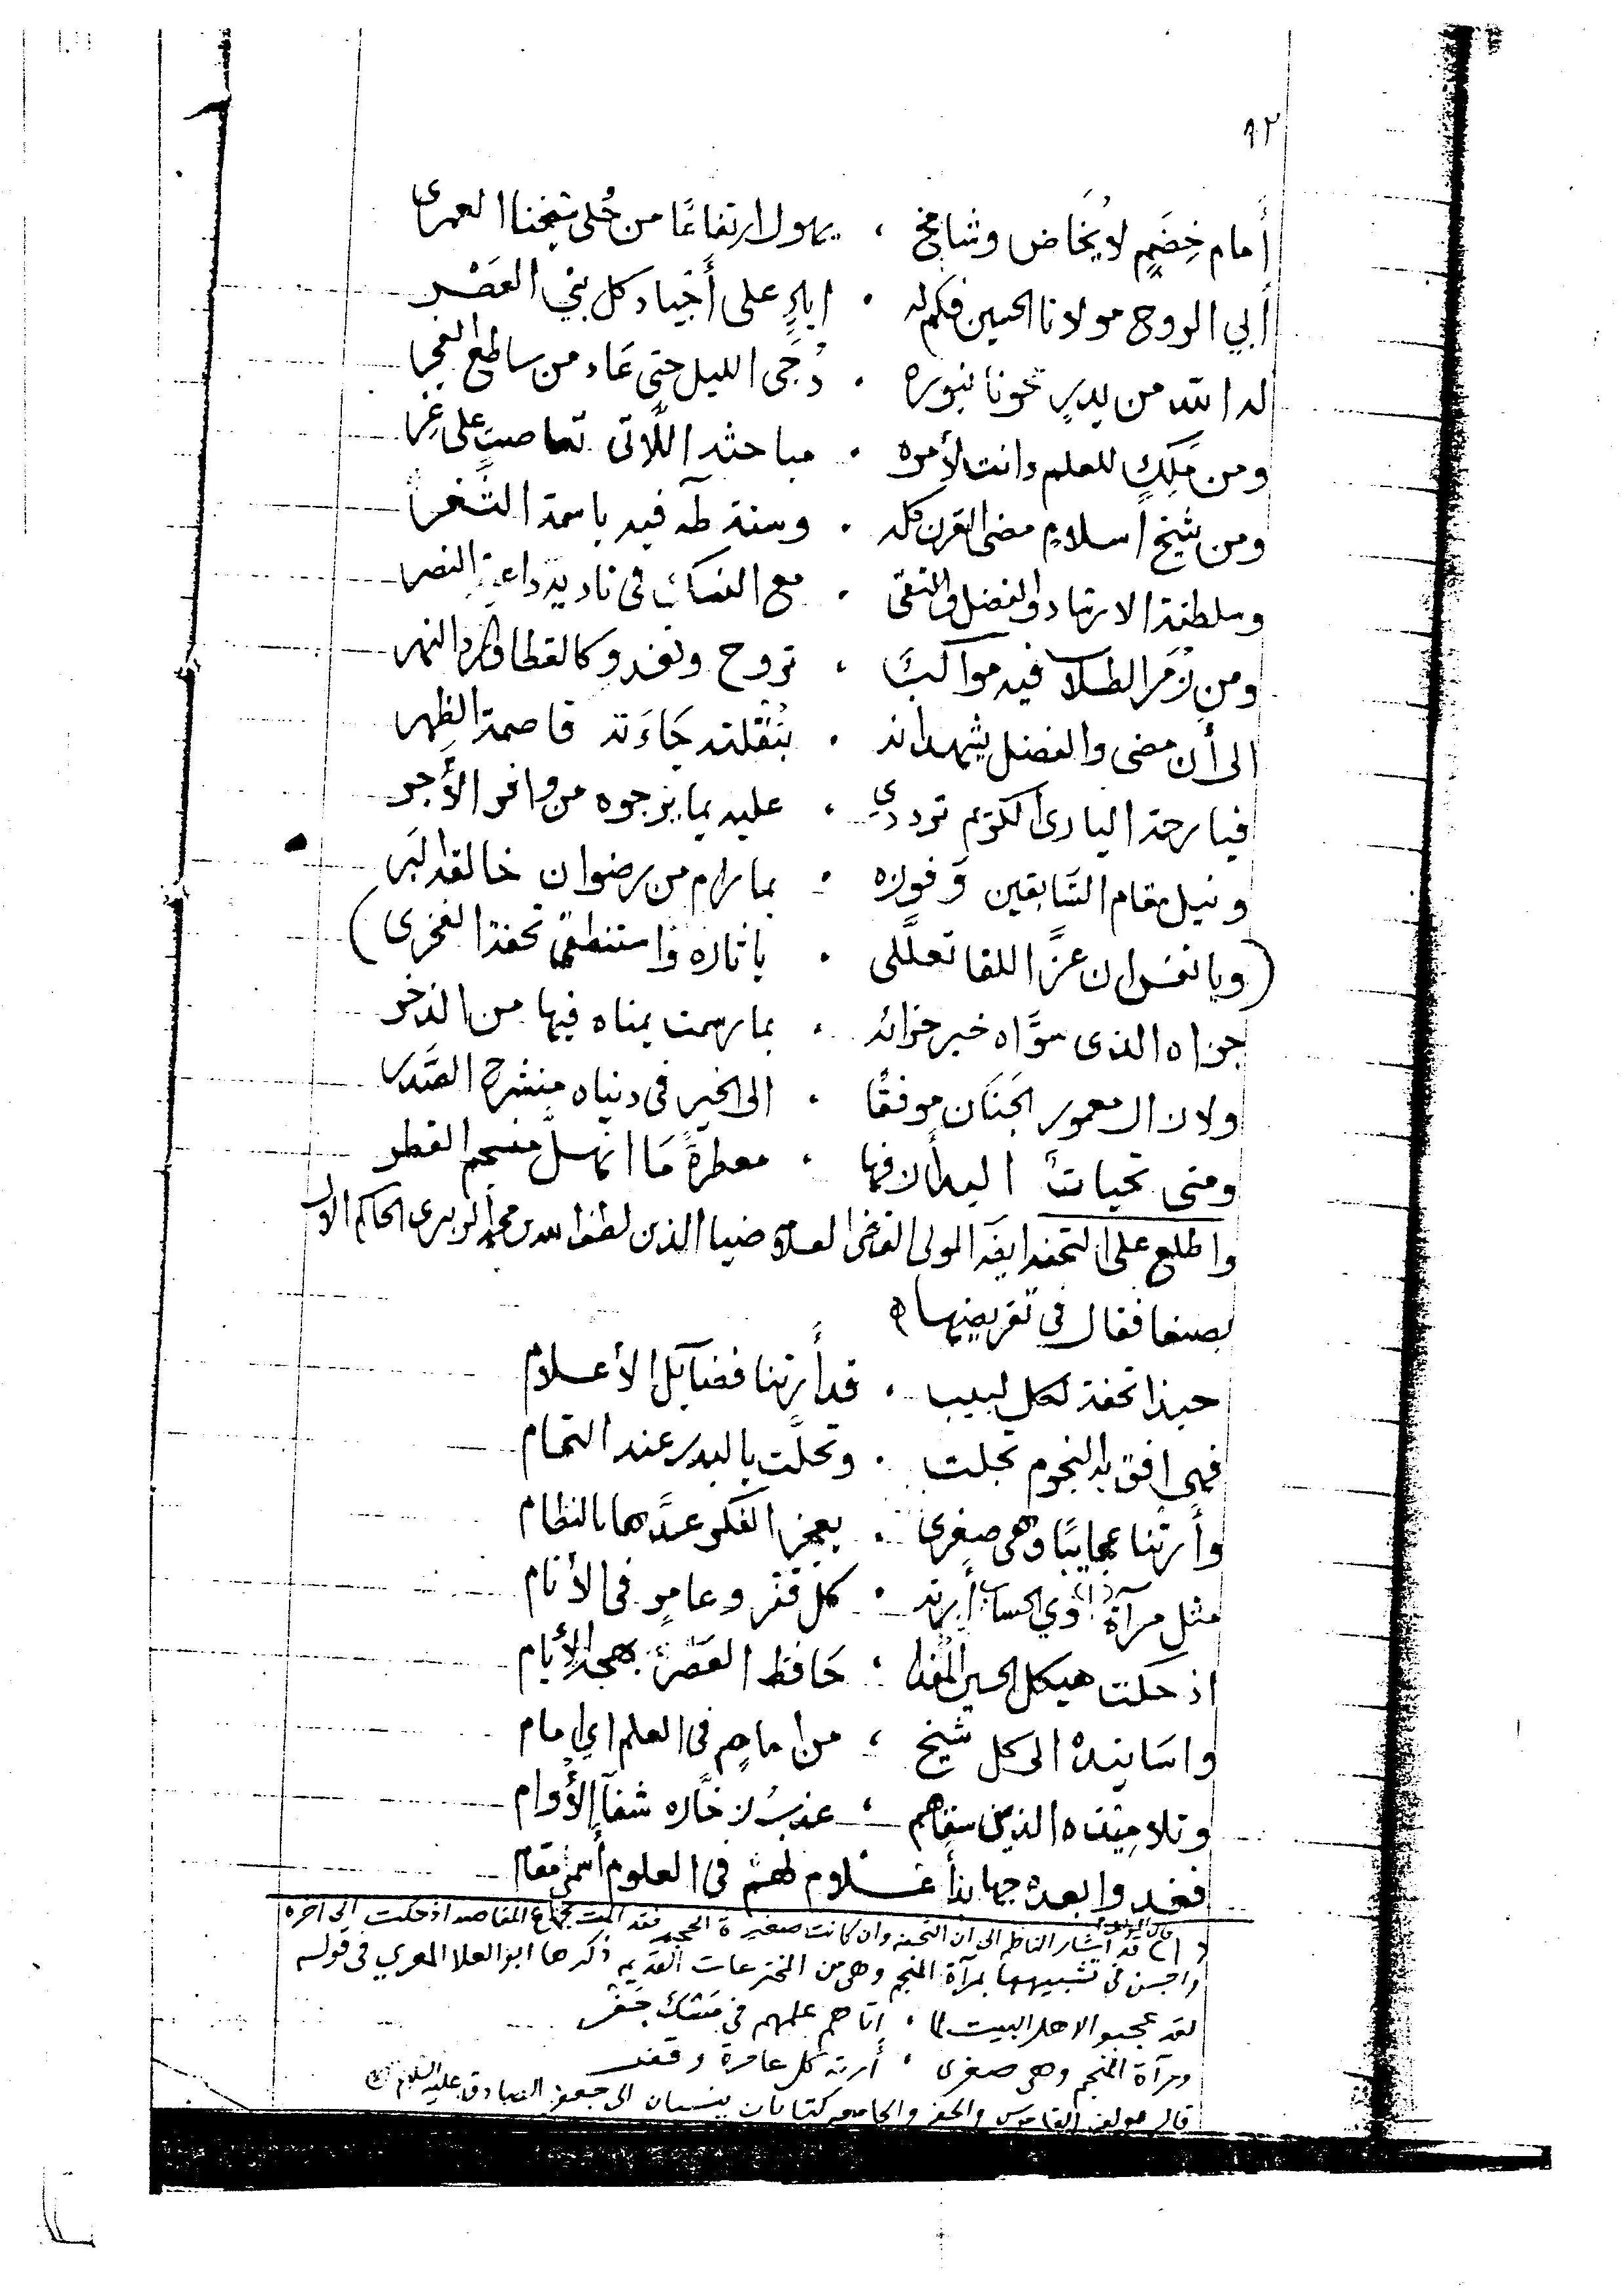 ٩٢
أمام خِضَمٍّ لا يُخَاض وشامخ ، يهول ارتفاعًا من حُلى شيخنا العمرى
أبي الروح مولانا الحسين فكم له ، ايادٍ على أجياد كل بني العَصْر
له الله من بدرٍ محونا بنوره ، دُجَى الليل حتى عَاد من ساطع الفجر
ومن مَلِكٍ للعلم دانت لأمره ، مباحثه اللّاتى تعاصت على غِر
ومن شيخ اسلام مضى القرن كله ، وسنة طٰه فيه باسمة الثَّغر
وسلطنة الارشاد والفضل والتقى ، مع النساك فى ناديه داعية النصر
ومن زُمَر الطلاب فيه مواكبٌ ، تروح وتغدو كالقطا وارد النهر
الى أن مضى والفضل يشهد انه ، بنُقلته جَاءَته قاصمة الظهر
فيا رحمة البارى الكريم ترددي ، عليه بما يرجوه من وافر الأجر
ونيل مقام السَّابقين وَفوزه ، بما رام من رضوان خالقه البَر
(ويا نفس ان عزَّ اللقا تعلَّلى ، بآثاره واستنطقى تحفة الفخرى)
جزاه الذى سوَّاه خير جزائه ، بما رسمت يمناه فيها من الذخر
ولا زال معمور الجَنَان موفقًا ، الى الخير فى دنياه منشرح الصَّدر
ومنى تحيات اليه أزفها ، معطرةً مَا انهلَّ منسجم القطر
واطلع على التحفة ايضًا المولى القاضى العلامة ضيا الدين لطف الله بن محمد الزبيرى الحاكم الاول
بصنعا فقال في تقريضها
حبذا تحفة لكل لبيب ، قد أرتنا فضآئل الأعلام
فهى افق به النجوم تجلت ، وتحلَّت بالبدر عند التمام
وأرتنا عجايبًا وهى صغرى ، يعجز الفكر عدَّها بالنظام
مثل مرآة (١) ذوي الحساب أرته ، كل قفر وعامر فى الأنام
اذ حكت هيكل الحسين المُفدا ، حَافظ العَصر بهجة الأيام
واسَانيدهْ الى كل شيخ ، من امامٍ فى العلم اي امام
وتلاميذه الذين سقاهم ، عذبُ زخَّاره شفآ الأُوام
فغدوا بعده جهابذ أعلام لهم فى العلوم أسمى مقام
(١) قال المؤلف قد أشار الناظم الى ان التحفة وان كانت صغيرة الحجم فقد المت بجماع المقاصد اذ حكت إلى اخره
واحسن فى تشبيهها بمرآة المنجم وهى من المخترعات القديمه ذكرها ابو العلا المعري فى قوله
لقد عجبوا لاهل البيت لما ، اتاهم علمهم فى مَسْك جَفْر
ومرآة المنجم وهى صغرى ، أرته كل عامرة وقفر
قال مولف القاموس والجفر والجامعه كتابان ينسبان الى جعفر الصادق عليه السلام